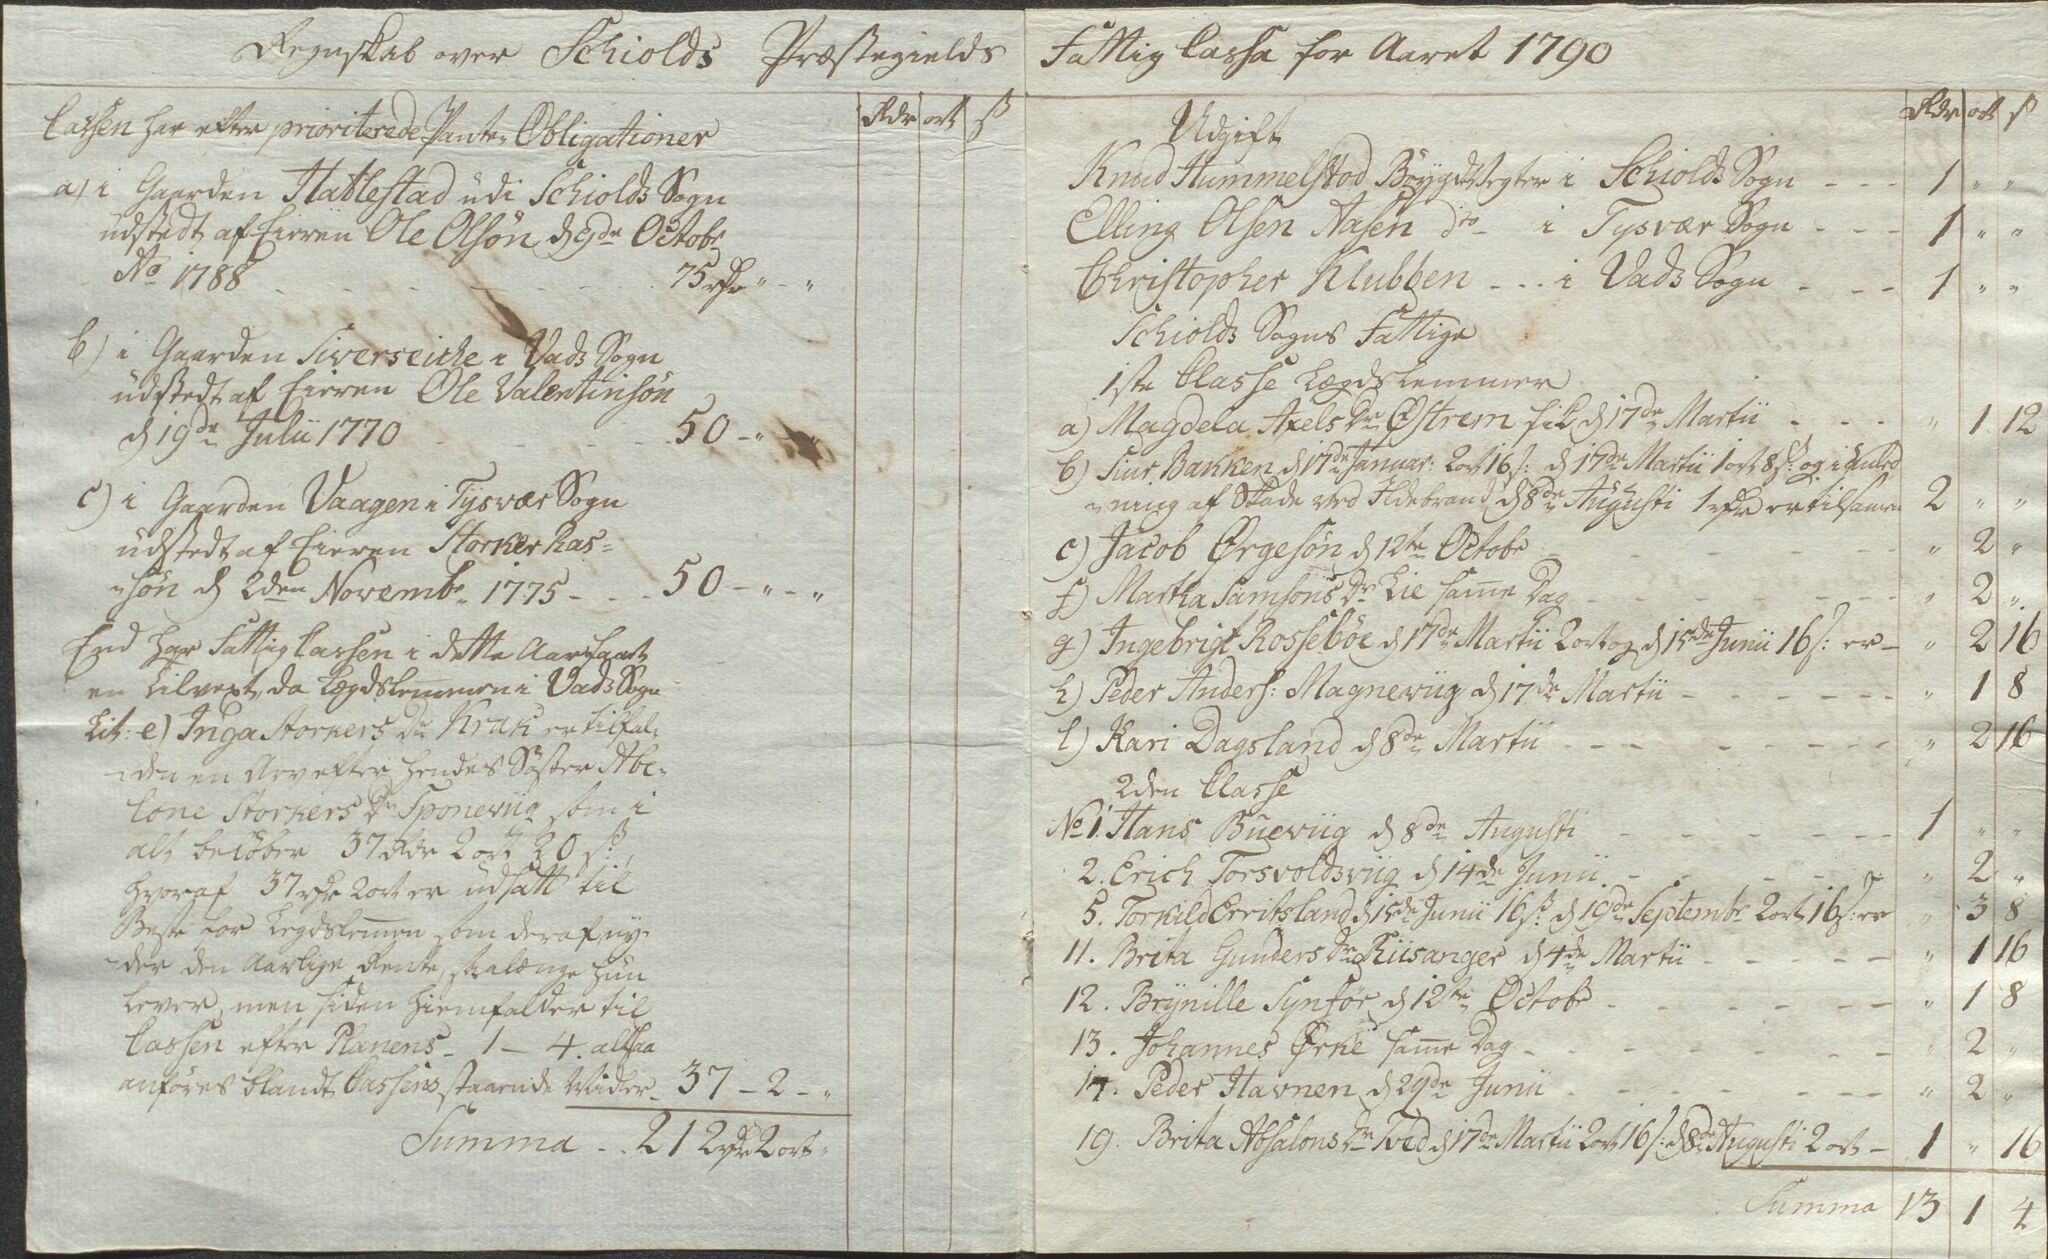 Regnskab over Schiolds Præstegields Fattig Cassa for Aaret 1790
Rdr ort ß
Cassen har efter prioriterede Pante Obligationer
a) i Gaarden Hatlestad udi Schiolds Sogn
udstedt af Eieren Ole Olsøn d 9de Octobr
Ao 1788 - - - - - 75 rdr " - "
b) i Gaarden Siverseiche i Vads Sogn
udstedt af Eieren Ole Valentinsøn
d 19de Julii 1770 - - - - - 50 - " - "
c) i Gaarden Vaagen i Tysvær Sogn
udstedt af Eieren Storker Ras=
=søn d 2den Novembr 1775 - - - 50 - " - "
End har Fattig Cassen i dette Aar faaet
en Tilvext, da Lægdslemmen i Vads Sogn
Lit: e) Inga Storkers Dr Krak er tilfal=
=den en Arv efter hendes Søster Abe=
lone Storkers Dr Sponeviig som i
alt beløber 37 Rdr 2 ort 20 ß,
hvoraf 37 rdr 2 ort er udsatt til
Beste for Legdslemen som deraf ny=
=der den Aarlige Rente, saalænge hun
lever, men siden hiemfalder til
Cassen efter Planens - 1 - 4. altsaa
anføres blandt Cassens staaende Midler - 37 - 2 - "
Summa - - 212 rdr 2 ort "
Rdr ort ß
Udgift
Knud Hummelstod Bøygde Vegter i Schiolds Sogn - - - 1 " "
Elling Olsen Aasen dto - i Tysvær Sogn - - - 1 " "
Christopher Klubben - - - i Vads Sogn - - - 1 " "
Schiolds Sogns Fattige
1ste Classe Lægdslemmer
a) Magdela Axels Dr Østrem fik d 17de Martii - - - " 1 12
b) Siur Bakken d 17de Januar: 2 ort 16 ß: d 17de Martii 1 ort 8 ß: og i
=ning af Skade ved Ildebrand d 8de Augusti 1 rdr er tilsamen 2 " "
c) Jacob Ørgesøn d 12te Octobr - - - " 2 "
f) Martha Samsons Dr Lie samme Dag - - - " 2 "
g) Ingebrigt Rossebøe d 17de Martii 2 ort og d 15de Junii 16 ß: er - " 2 16
h) Peder Anders: Magneviig d 17de Martii - - - " 1 8
l) Kari Dagsland d 8de Martii - - - " 2 16
2den Classe
No 1. Hans Bueviig d 8de Augusti - - - 1 " "
2. Erich Torsvoldsviig d 14de Junii - - - " 2 "
5. Torkild Erritsland d 15de Junii 16 ß: d 19de Septembr 2 ort 16 ß: er " 3 8
11. Brita Gunders Dr Riisanger d 4de Martii - - - " 1 16
12. Brynille Synføe d 12te Octobr - - - " 1 8
13. Johannes Ørke samme Dag - - - " 2 "
14. Peder Havnen d 29de Junii - - - " 2 "
19. Brita Absalons Dr Tved d 17de Martii 2 ort 16 ß: d 8de Augusti 2 ort - 1 " 16
Summa 13 1 4